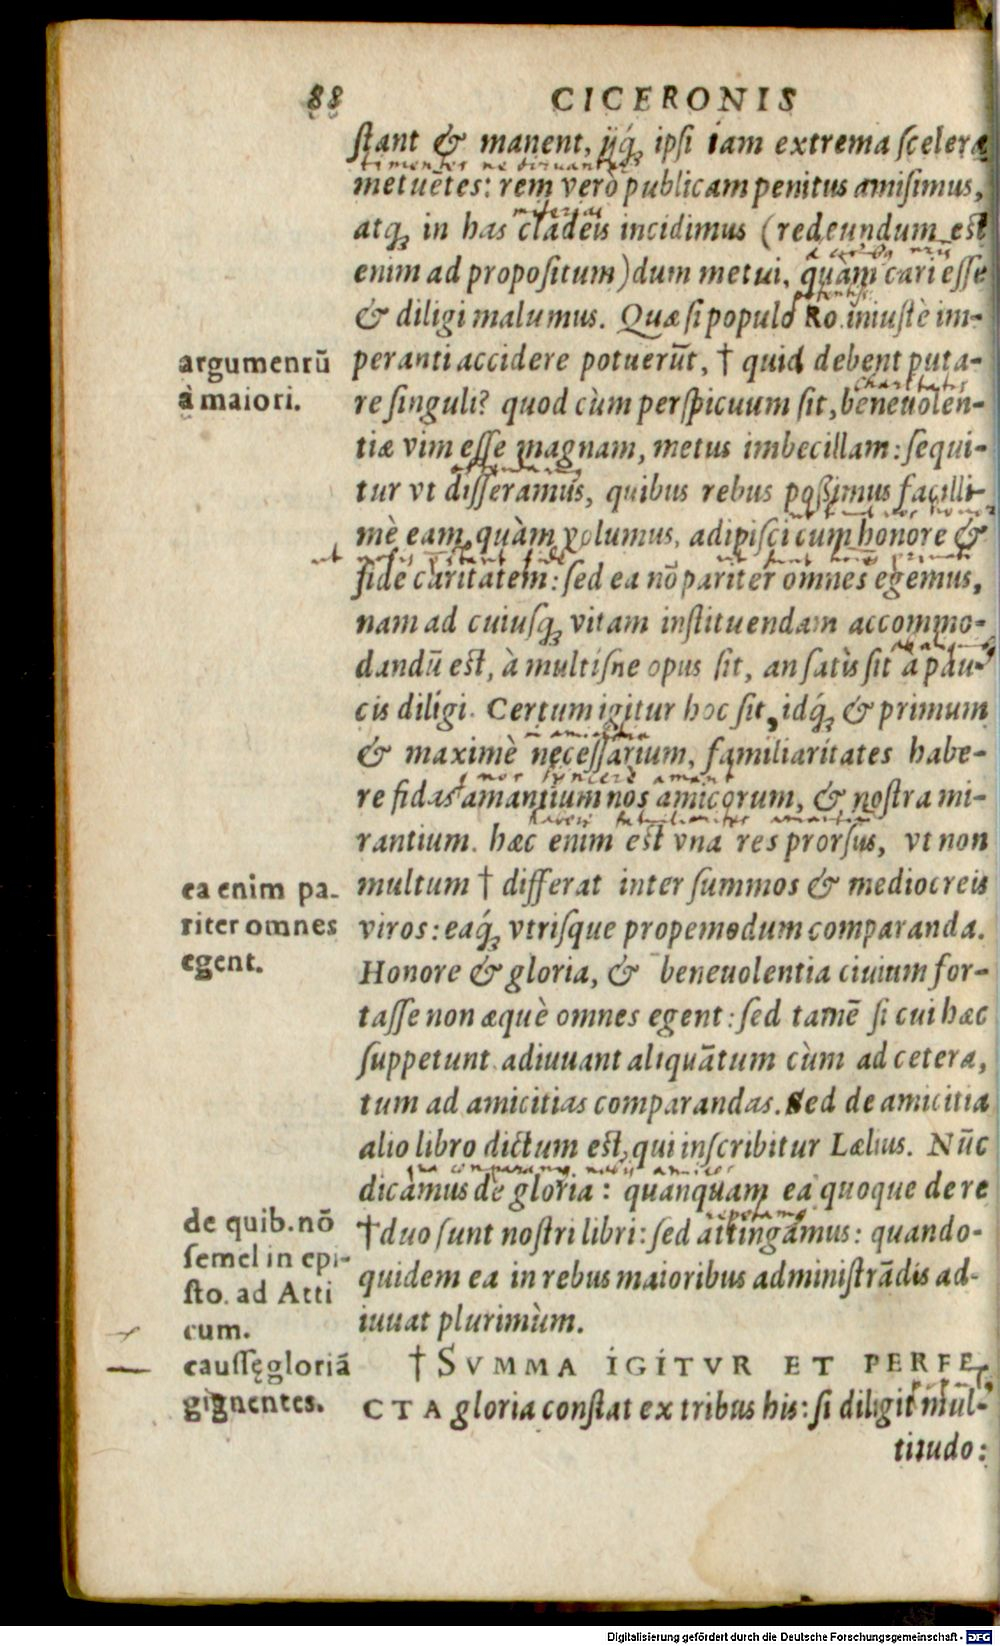 88 CICERONIS
stant & manent, ijq́; ipsi iam extrema scelera
timentes ne diruantur
metuẽtes: rem verò publicam penitus amisimus,
miserias
atq; in has cladeis incidimus (redeundum est
enim ad propositum) dum metui, quàm cari esse
& diligi malumus. Quæ si populo Ro. iniustè im-
argumentũ
peranti accidere potuerũt, † quid debent puta-
à maiori.
charitatis
re singuli? quod cùm perspicuum sit, beneuolen-
tiæ vim esse magnam, metus imbecillam: sequi-
tur vt disseramus, quibus rebus possimus facilli-
mè eam, quàm volumus, adipisci cum honore &
fide caritatem: sed ea nõ pariter omnes egemus,
nam ad cuiusq; vitam instituendam accommo-
dandũ est, à multisne opus sit, an satìs sit à pau-
cis diligi. Certum igitur hoc sit, idq́; & primum
in amicitia
& maximè necessarium, familiaritates habe-
nos syncere amant
re fidas amantium nos amicorum, & nostra mi-
rantium. hæc enim est vna res prorsus, vt non
ea enim pa-
multum † differat inter summos & mediocreis
riter omnes
viros: eaq́; vtrisque propemodum comparanda.
egent.
Honore & gloria, & beneuolentia ciuium for-
tasse non æquè omnes egent: sed tamẽ si cui hæc
suppetunt adiuuant aliquãtum cùm ad cetera,
tum ad amicitias comparandas. Sed de amicitia
alio libro dictum est, qui inscribitur Lælius. Nũc
nobis amicos
dicamus de gloria: quanquam ea quoque de re
de quib. nõ
†duo sunt nostri libri: sed attingamus: quando-
semel in epi-
quidem ea in rebus maioribus administrãdis ad-
sto. ad Atti
iuuat plurimùm.
cum.
caussę gloriã
† SVMMA IGITVR ET PERFE-
gignentes.
CTA gloria constat ex tribus his: si diligit mul-
titudo:
Digitalisierung gefördert durch die Deutsche Forschungsgemeinschaft - DFG